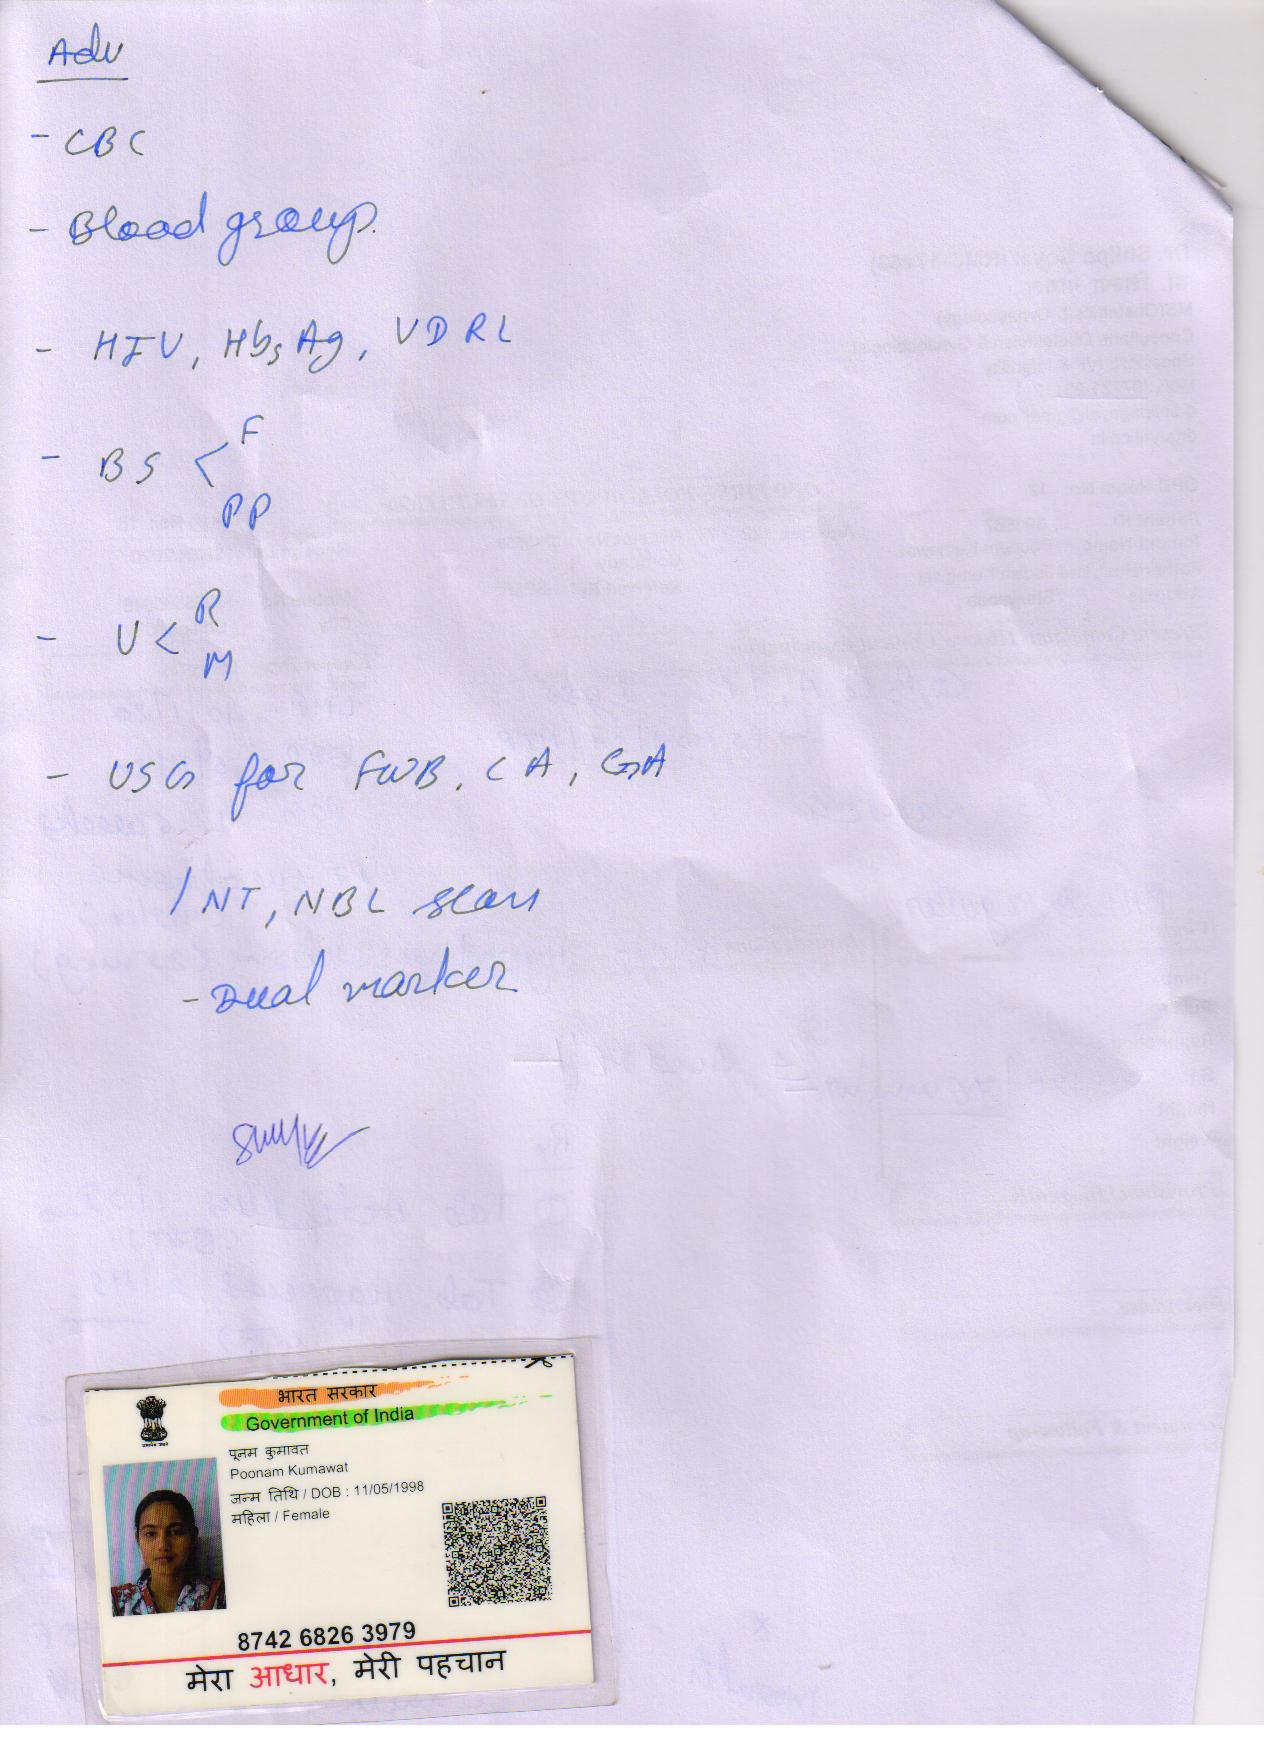 Adv
- CBC
- Blood group.
- HIV, HbsAg, VDRL
- BS < F
PP
- U < R
M
- USG for FWB, CA, GA
/ NT, NBL scan
- Dual marker
भारत सरकार
Government of India
पूनम कुमावत
Poonam Kumawat
जन्म तिथि / DOB : 11/05/1998
महिला / Female
8742 6826 3979
मेरा आधार, मेरी पहचान